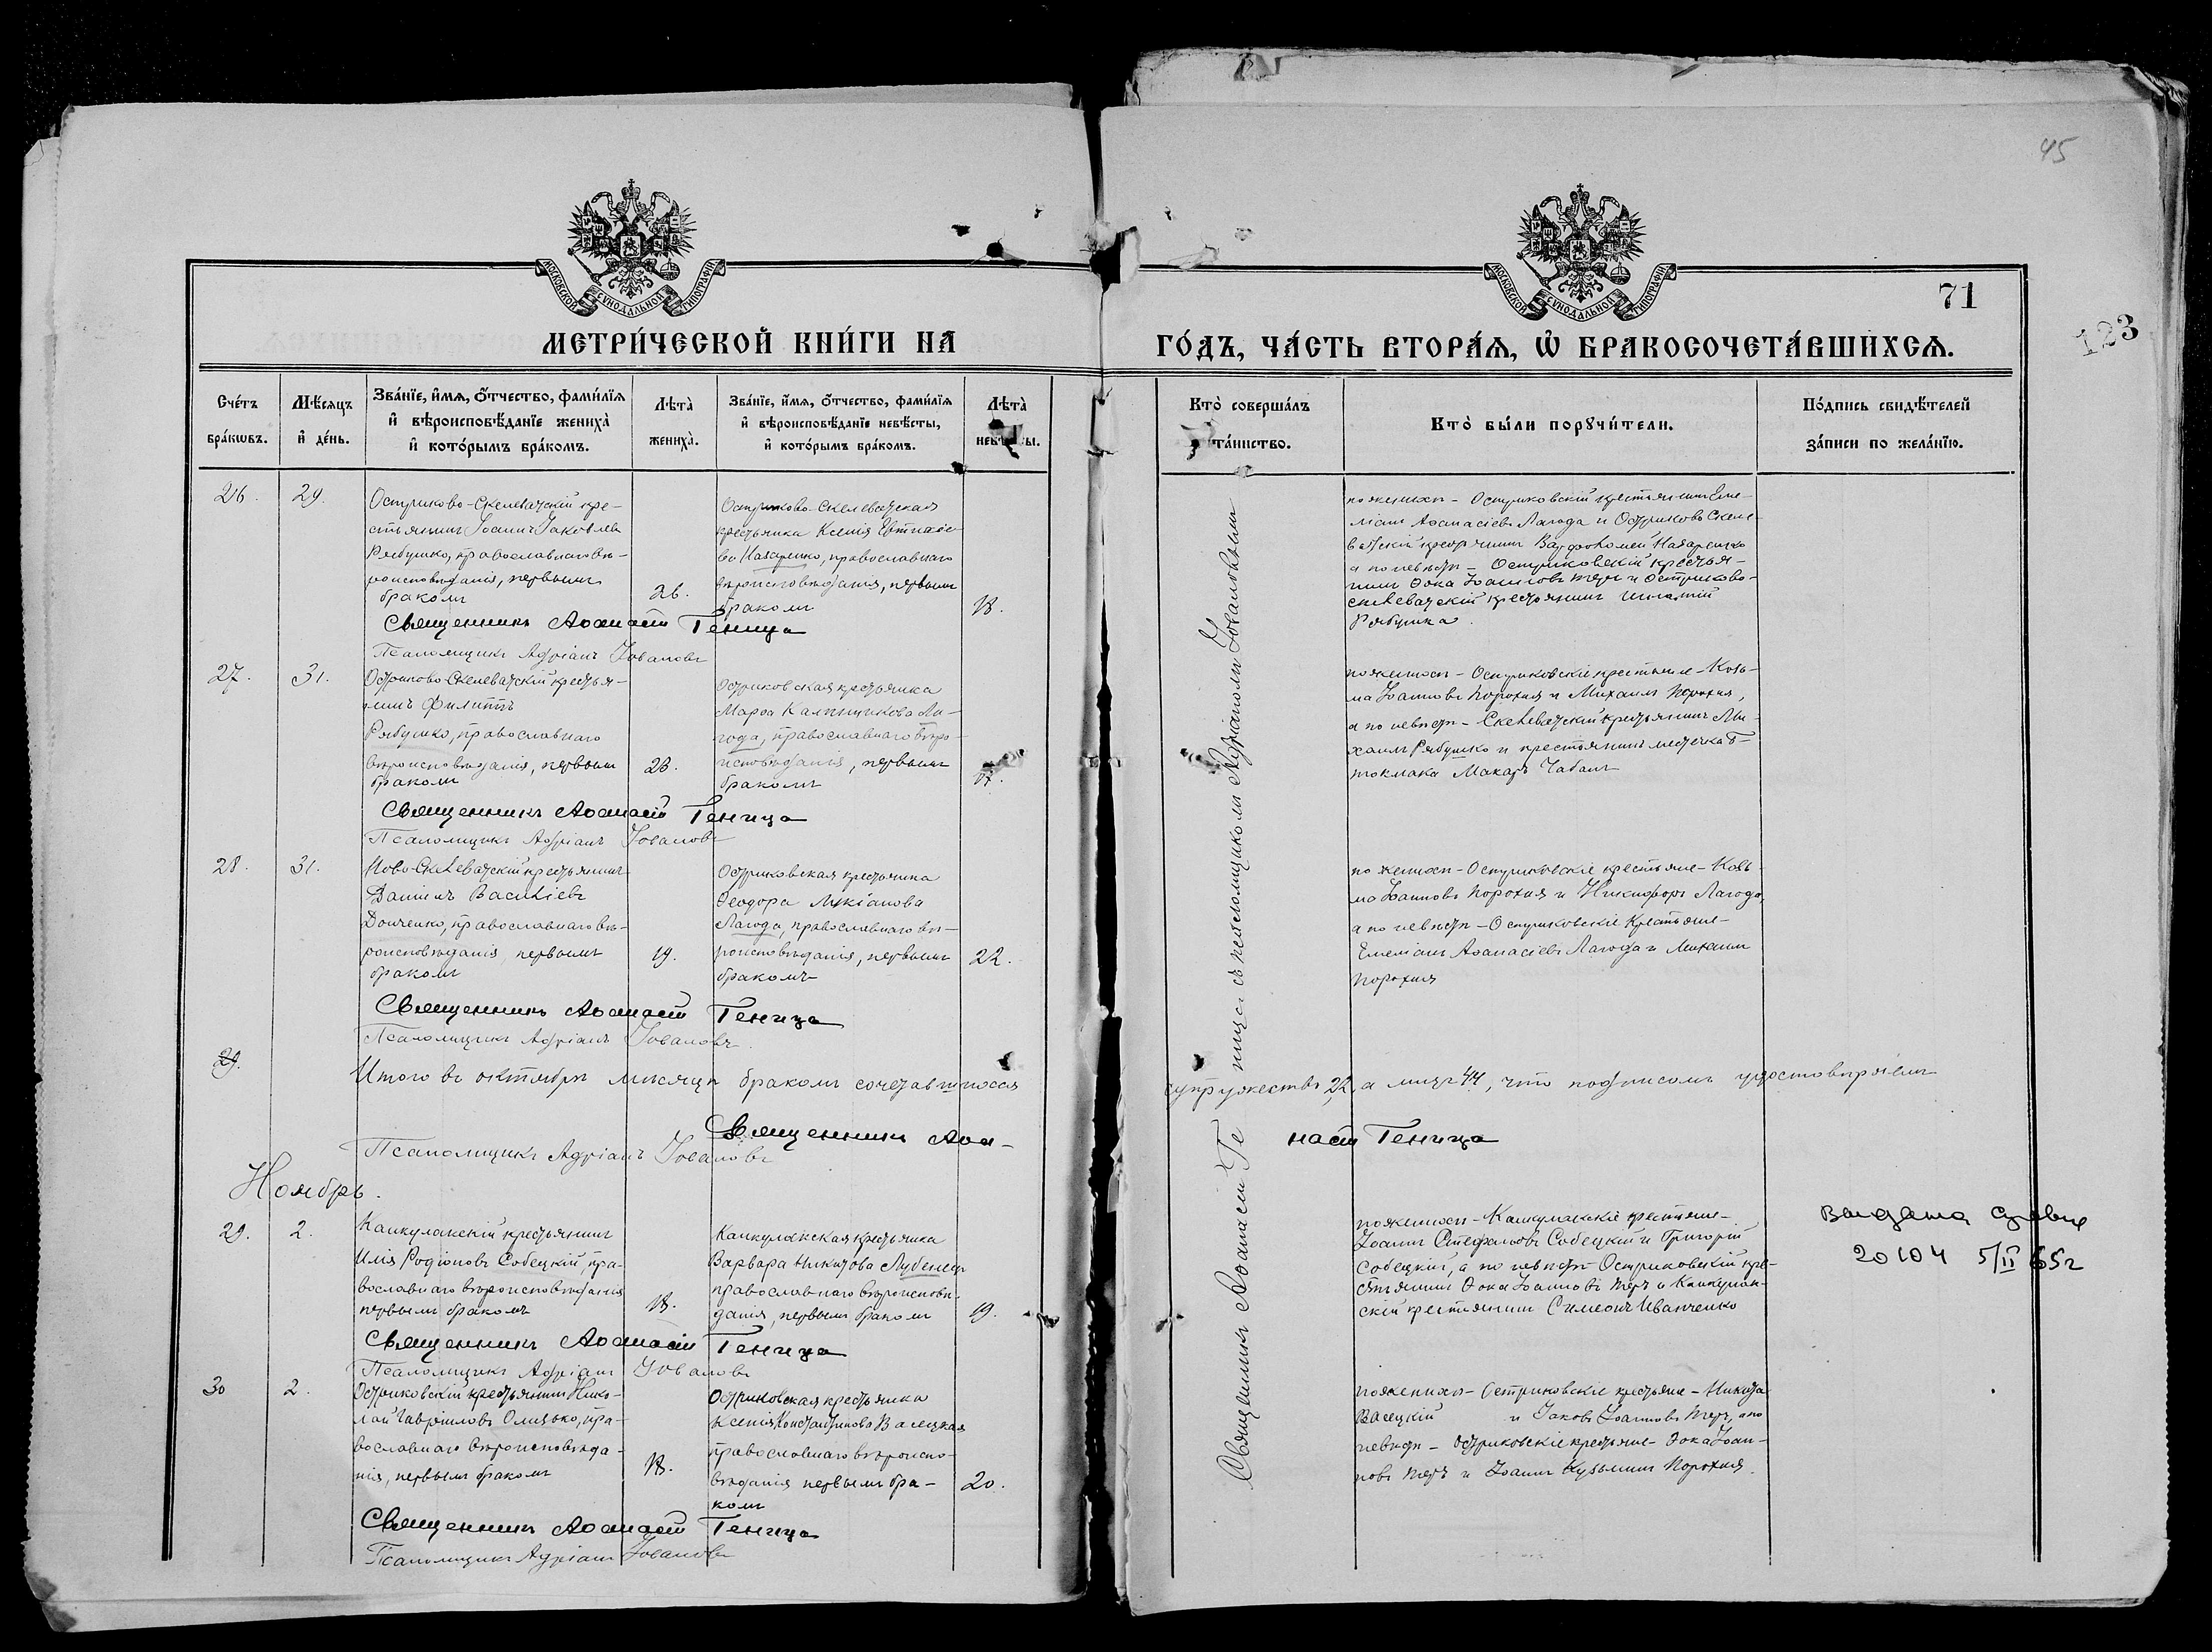 45
71
123
МОСКОВСКОЙ СѴНОДАЛЬНОЙ ТИПОГРАФІИ
МОСКОВСКОЙ СѴНОДАЛЬНОЙ ТИПОГРАФІИ
МЕТРИ́ЧЕСКОЙ КНИ́ГИ НА
ГО́ДЪ, ЧА́СТЬ ВТОРА́Я, Ѡ БРАКОСОЧЕТА́ВШИХСЯ.
Сче́тъ бра́кωвъ.
Мѣ́сяцъ и де́нь.
Зва́нїе, и́мя, ѻ́тчество, фами́лїя и вѣроисповѣ́данїе жениха̀ и кото́рымъ бра́комъ.
Лѣта̀ жениха̀.
Зва́нїе, и́мя, ѻ́тчество, фами́лїя и вѣроисповѣ́данїе невѣ́сты, и кото́рымъ бра́комъ.
Лѣта̀ невѣ́сты.
Кто̀ соверша́лъ та́инство.
Кто̀ бы́ли порꙋчи́тели.
По́дпись свидѣ́телей за́писи по жела́нїю.
26.
29.
Остриково-Скелеватскій кре-
стьянинъ Іоаннъ Іаковлевъ
Рябушко, православнаго вѣ-
роисповѣданія, первымъ
бракомъ
26.
Остриково-Скелеватская
крестьянка Ксенія
Назаренко, православнаго
вѣроисповѣданія, первымъ
бракомъ
18.
по женихѣ - Остриковскій крестьянинъ Еме-
ліанъ Аѳанасіевъ Лагода и Остриково Скеле-
ватскій крестьянинъ Варфоломей Назаренко
а по невѣстѣ - Остриковскій крестья-
нинъ Ѳока Іоанновъ Теръ и Остриково-
скелеватскій крестьянинъ Игнатій
Рябушка.
Священникъ Аѳанасій Геница
Псаломщикъ Адріанъ Іовановъ
27.
31.
Остриково-Скелеватскій крестья-
нинъ Филиппъ
Рябушко, православнаго
вѣроисповѣданія, первымъ
бракомъ
23.
Остриковская крестьянка
Марѳа Калинникова Ла-
года, православнаго вѣро-
исповѣданія, первымъ
бракомъ
17.
по женихѣ - Остриковскіе крестьяне - Козь-
ма Іоанновъ Порохня и Михаилъ Порохня,
а по невѣстѣ - Скелеватскій крестьянинъ Ми-
хаилъ Рябушко и крестьянинъ мѣстечка Б-
токмака Макаръ Чабанъ
Священникъ Аѳанасій Геница
Псаломщикъ Адріанъ Іовановъ
28.
31.
Ново-Скелеватскій крестьянинъ
Даніилъ Василіевъ
Донченко, православнаго вѣ-
роисповѣданія, первымъ
бракомъ
19.
Остриковская крестьянка
Ѳеодора Лукіанова
Лагода, православнаго вѣ-
роисповѣданія, первымъ
бракомъ
22.
по женихѣ - Остриковскіе крестьяне - Козь-
ма Іоанновъ Порохня и Никифоръ Лагода,
а по невѣстѣ - Остриковскіе крестьяне -
Емеліанъ Аѳанасіевъ Лагода и Михаилъ
Порохня
Священникъ Аѳанасій Геница
Псаломщикъ Адріанъ Іовановъ.
29.
Итого въ октябрѣ мѣсяцѣ бракомъ сочетавшихся
супружествъ 22, а лицъ 44, что подписомъ удостовѣряемъ
Священникъ Аѳа-
насій Геница
Псаломщикъ Адріанъ Іовановъ
Ноябрь.
29.
2.
Канкулакскій крестьянинъ
Илія Родіоновъ Собецкій, пра-
вославнаго вѣроисповѣданія
первымъ бракомъ
18.
Канкулакская крестьянка
Варвара Никитова Лубенецъ
православнаго вѣроисповѣ-
данія, первымъ бракомъ
19.
по женихѣ - Канкулакскіе крестьяне -
Іоаннъ Стефановъ Собецкій и Григорій
Собецкій, а по невѣстѣ - Остриковскій кре-
стьянинъ Ѳока Іоанновъ Теръ и Канкулак-
скій крестьянинъ Симеонъ Иванченко
Выдана
20104 5/II 65г
Священникъ Аѳанасій Геница
Псаломщикъ Адріанъ Іовановъ
30
2.
Остриковскій крестьянинъ Нико-
лай Гавріиловъ Олицько, пра-
вославнаго вѣроисповѣда-
нія, первымъ бракомъ
18.
Остриковская крестьянка
Ксенія Константинова Валецкая
православнаго вѣроиспо-
вѣданія первымъ бра-
комъ
20.
по женихѣ - Остриковскіе крестьяне - Никита
Валецкій и Іаковъ Іоанновъ Теръ, а по
невѣстѣ - Остриковскіе крестьяне - Ѳока Іоан-
новъ Теръ и Іоаннъ Кузьминъ Порохня.
Священникъ Аѳанасій Геница
Псаломщикъ Адріанъ Іовановъ
Священникъ Аѳанасій Геница съ псаломщикомъ Адріаномъ Іовановымъ